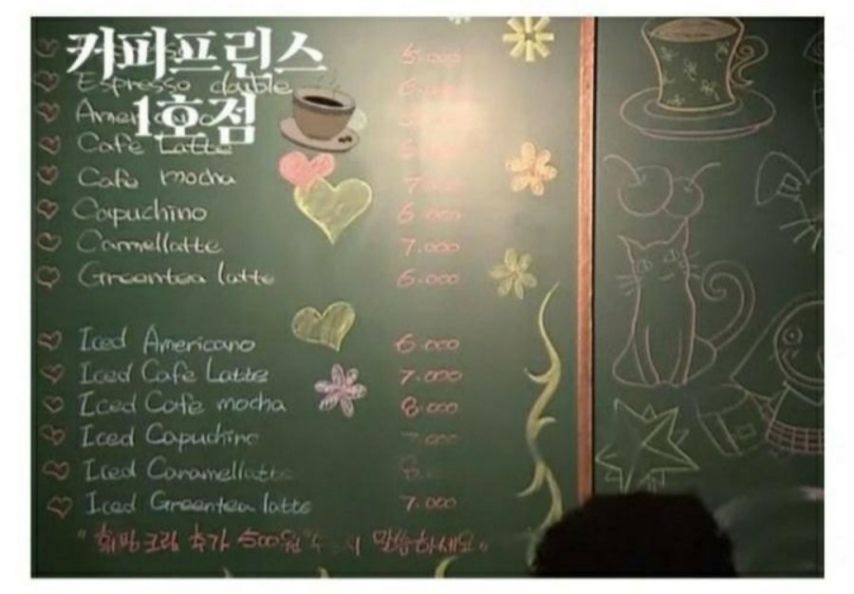 커피프린스
1호점
5.000
Espresso double
Americano
Cafe Latte
Cafe mocha 7.000
Capuchino 6.000
Carmellatte 7.000
Greentea latte 6.000
Iced Americano 6.000
Iced Cafe Latte 7.000
Iced Cafe mocha 8.000
Iced Capuchino 7.000
Iced Caramellatte 8.
Iced Greentea latte 7.000
"휘핑크림 추가 500원 시 말씀하세요"